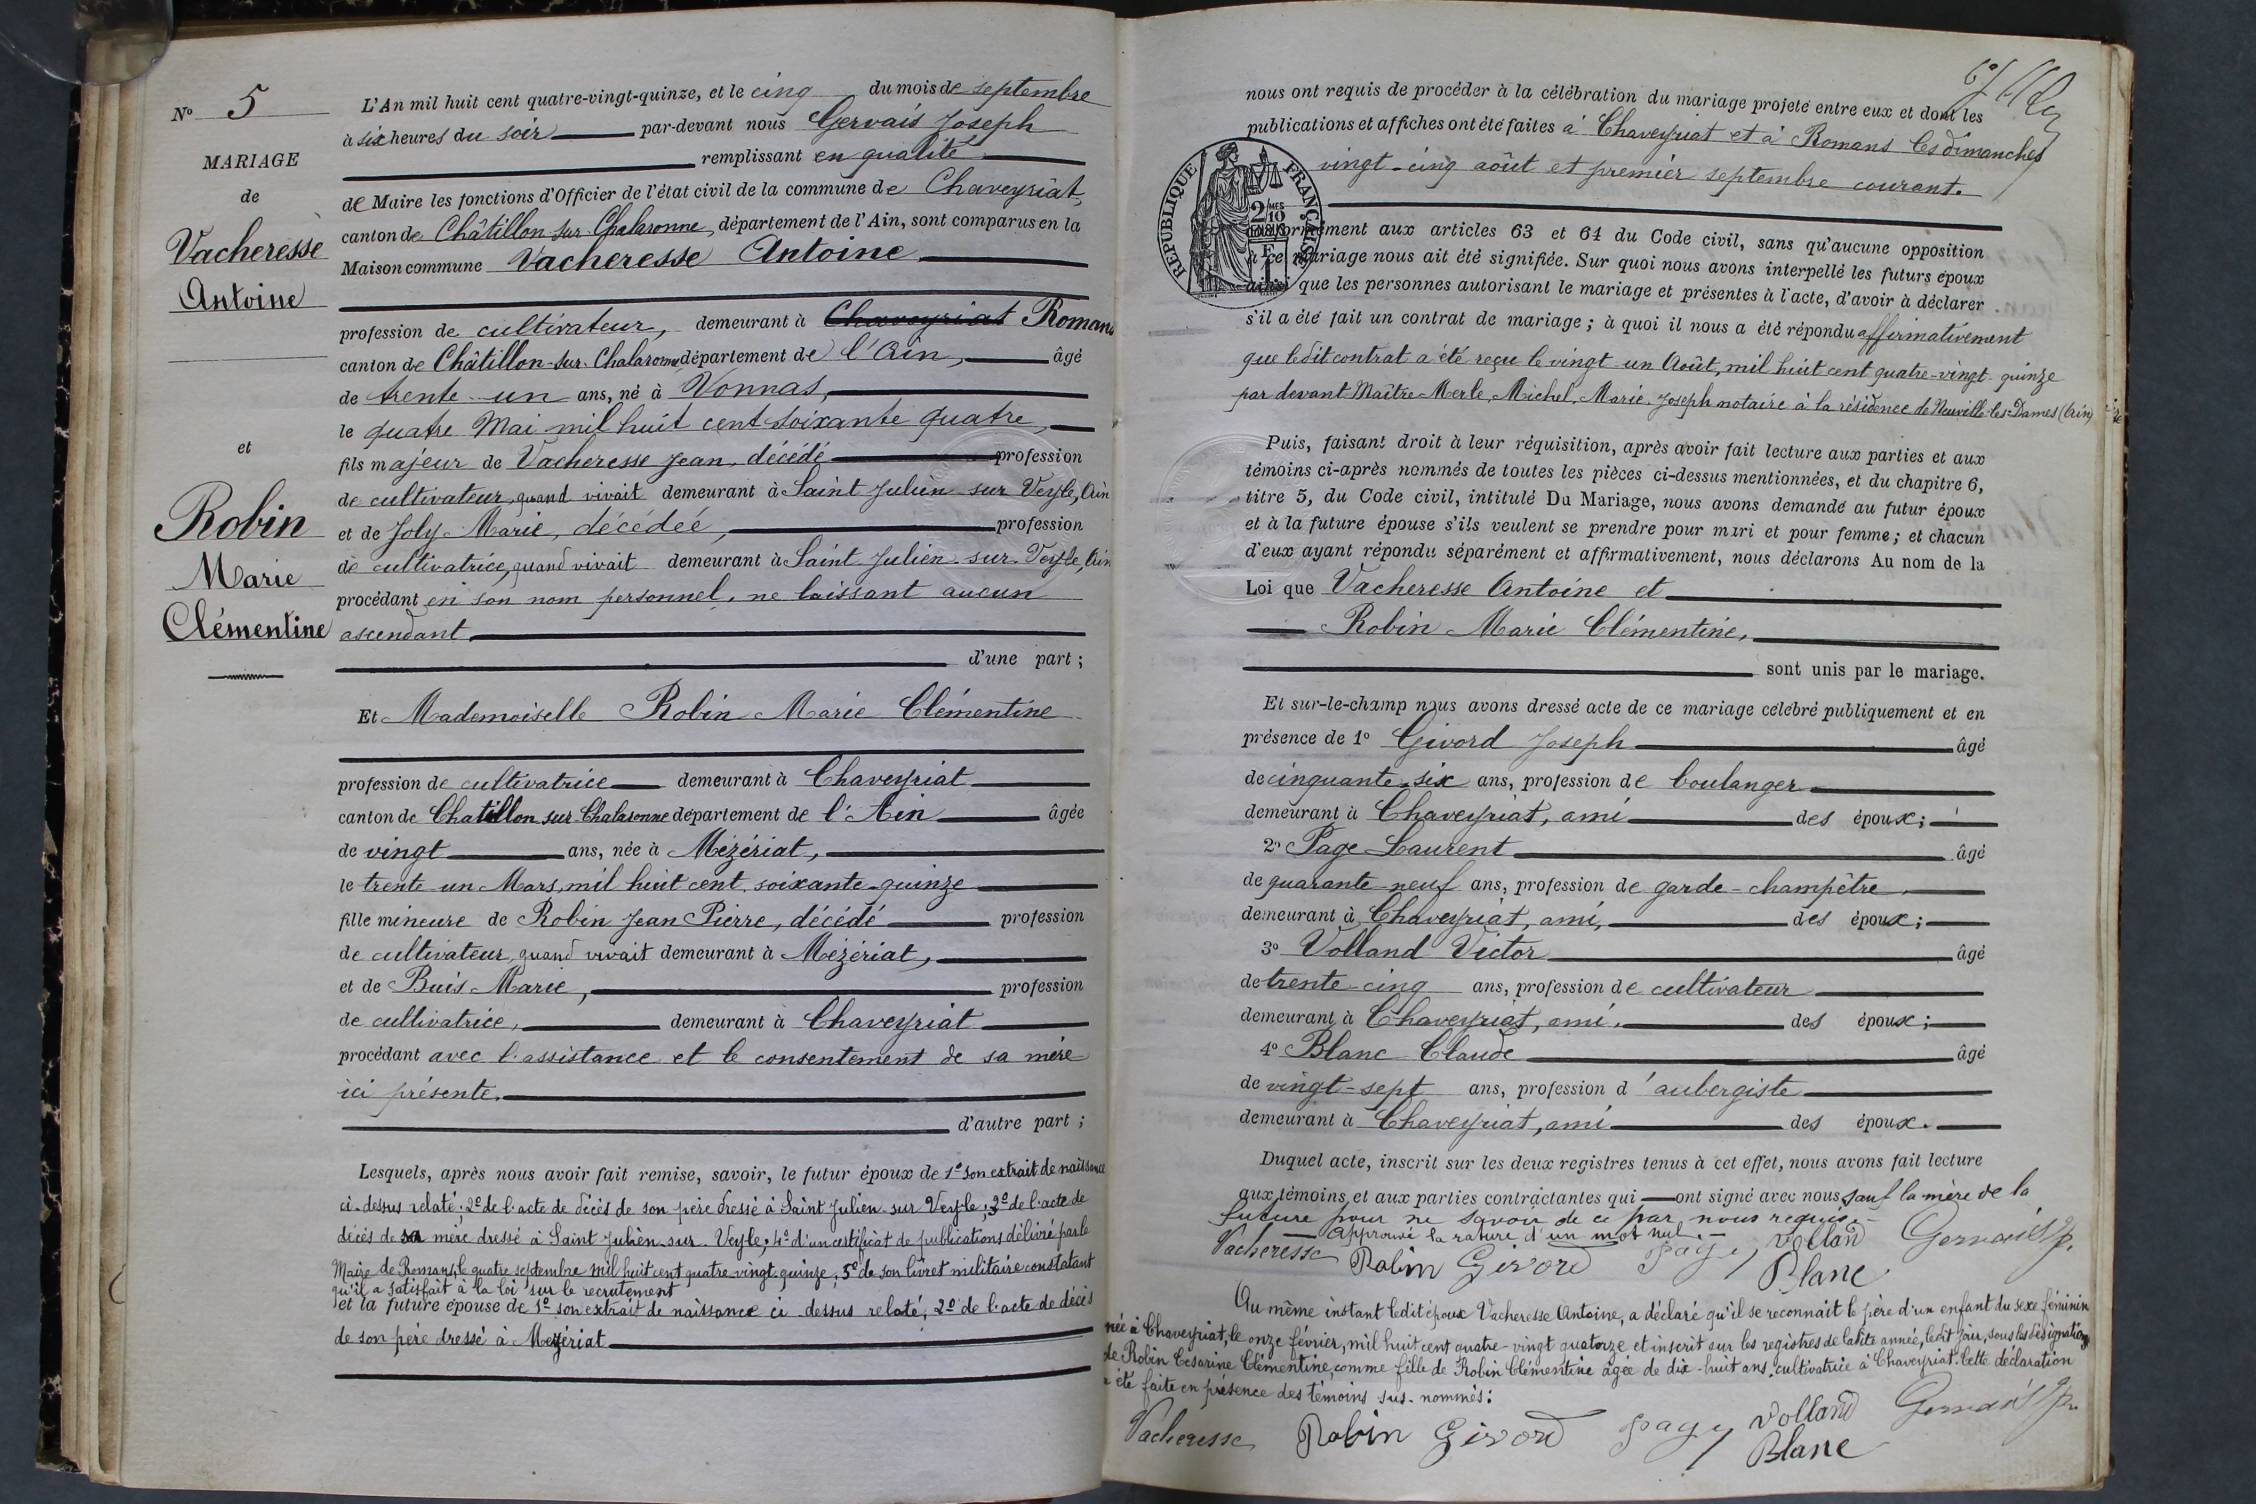 N° 5
MARIAGE
de
Vacheresse
Antoine
et
Robin
Marie
Clémentine
L'An mil huit cent quatre-vingt-quinze, et le cinq du mois de septembre
à six heures du soir par-devant nous Gervais Joseph
remplissant en qualité
de Maire les fonctions d'Officier de l'état civil de la commune de Chaveyriat,
canton de Châtillon-sur-Chalaronne, département de l'Ain, sont comparus en la
Maison commune Vacheresse Antoine
profession de cultivateur, demeurant à Chaveyriat Romans
canton de Châtillon-sur-Chalaronne département de l'Ain, âgé
de trente-un ans, né à Vonnas,
le quatre Mai mil huit cent soixante quatre,
fils majeur de Vacheresse Jean, décédé profession
de cultivateur, quand vivait demeurant à Saint Julien sur Veyle, Ain
et de Joly Marie, décédée, profession
de cultivatrice, quand vivait demeurant à Saint Julien-sur-Veyle, Ain
procédant en son nom personnel, ne laissant aucun
ascendant
d'une part ;
Et Mademoiselle Robin Marie Clémentine
profession de cultivatrice demeurant à Chaveyriat
canton de Chatillon sur Chalaronne département de l'Ain âgée
de vingt ans, née à Mézériat,
le trente-un Mars, mil huit cent soixante-quinze
fille mineure de Robin Jean Pierre, décédé profession
de cultivateur, quand vivait demeurant à Mézériat,
et de Buis Marie, profession
de cultivatrice, demeurant à Chaveyriat
procédant avec l'assistance et le consentement de sa mère
ici présente.
d'autre part ;
Lesquels, après nous avoir fait remise, savoir, le futur époux de 1° son extrait de naissance
ci-dessus relaté ; 2° de l'acte de décès de son père dressé à Saint Julien-sur-Veyle ; 3° de l'acte de
décès de sa mère dressé à Saint Julien-sur-Veyle ; 4° d'un certificat de publications délivré par le
Maire de Romans, le quatre septembre mil huit cent quatre-vingt-quinze ; 5° de son livret militaire constatant
qu'il a satisfait à la loi sur le recrutement
et la future épouse de 1° son extrait de naissance ci-dessus relaté, 2° de l'acte de décès
de son père dressé à Mezériat
nous ont requis de procéder à la célébration du mariage projeté entre eux et dont les
publications et affiches ont été faites à Chaveyriat et à Romans les dimanches
vingt-cinq août et premier septembre courant.
RÉPUBLIQUE FRANÇAISE
2/10
conformément aux articles 63 et 64 du Code civil, sans qu'aucune opposition
à ce mariage nous ait été signifiée. Sur quoi nous avons interpellé les futurs époux
ainsi que les personnes autorisant le mariage et présentes à l'acte, d'avoir à déclarer
s'il a été fait un contrat de mariage ; à quoi il nous a été répondu affirmativement
que ledit contrat a été reçu le vingt-un Août, mil huit cent quatre-vingt-quinze
par devant Maître Merle, Michel, Marie, Joseph notaire à la résidence de Neuville-les-Dames (Ain)
Puis, faisant droit à leur réquisition, après avoir fait lecture aux parties et aux
témoins ci-après nommés de toutes les pièces ci-dessus mentionnées, et du chapitre 6,
titre 5, du Code civil, intitulé Du Mariage, nous avons demandé au futur époux
et à la future épouse s'ils veulent se prendre pour mari et pour femme ; et chacun
d'eux ayant répondu séparément et affirmativement, nous déclarons Au nom de la
Loi que Vacheresse Antoine et
Robin Marie Clémentine,
sont unis par le mariage.
Et sur-le-champ nous avons dressé acte de ce mariage célébré publiquement et en
présence de 1° Givord Joseph âgé
de cinquante-six ans, profession de boulanger
demeurant à Chaveyriat, ami des époux ;
2° Page Laurent âgé
de quarante-neuf ans, profession de garde-champêtre
demeurant à Chaveyriat, ami, des époux ;
3° Volland Victor âgé
de trente-cinq ans, profession de cultivateur
demeurant à Chaveyriat, ami, des époux ;
4° Blanc Claude âgé
de vingt-sept ans, profession d'aubergiste
demeurant à Chaveyriat, ami des époux.
Duquel acte, inscrit sur les deux registres tenus à cet effet, nous avons fait lecture
aux témoins et aux parties contractantes qui ont signé avec nous, sauf la mère de la
future pour ne savoir de ce par nous requis.
Approuvé la rature d'un mot nul.
Vacheresse Robin Givord Page Volland Gervais Jh.
Blanc
Au même instant ledit époux Vacheresse Antoine, a déclaré qu'il se reconnait le père d'un enfant du sexe féminin
née à Chaveyriat, le onze février, mil huit cent quatre-vingt quatorze et inscrit sur les registres de ladite année, ledit jour, sous les désignations
de Robin Césarine Clémentine, comme fille de Robin Clémentine âgée de dix-huit ans, cultivatrice à Chaveyriat. Cette déclaration
a été faite en présence des témoins sus-nommés :
Vacheresse Robin Givord Page Volland Gervais Jh.
Blanc